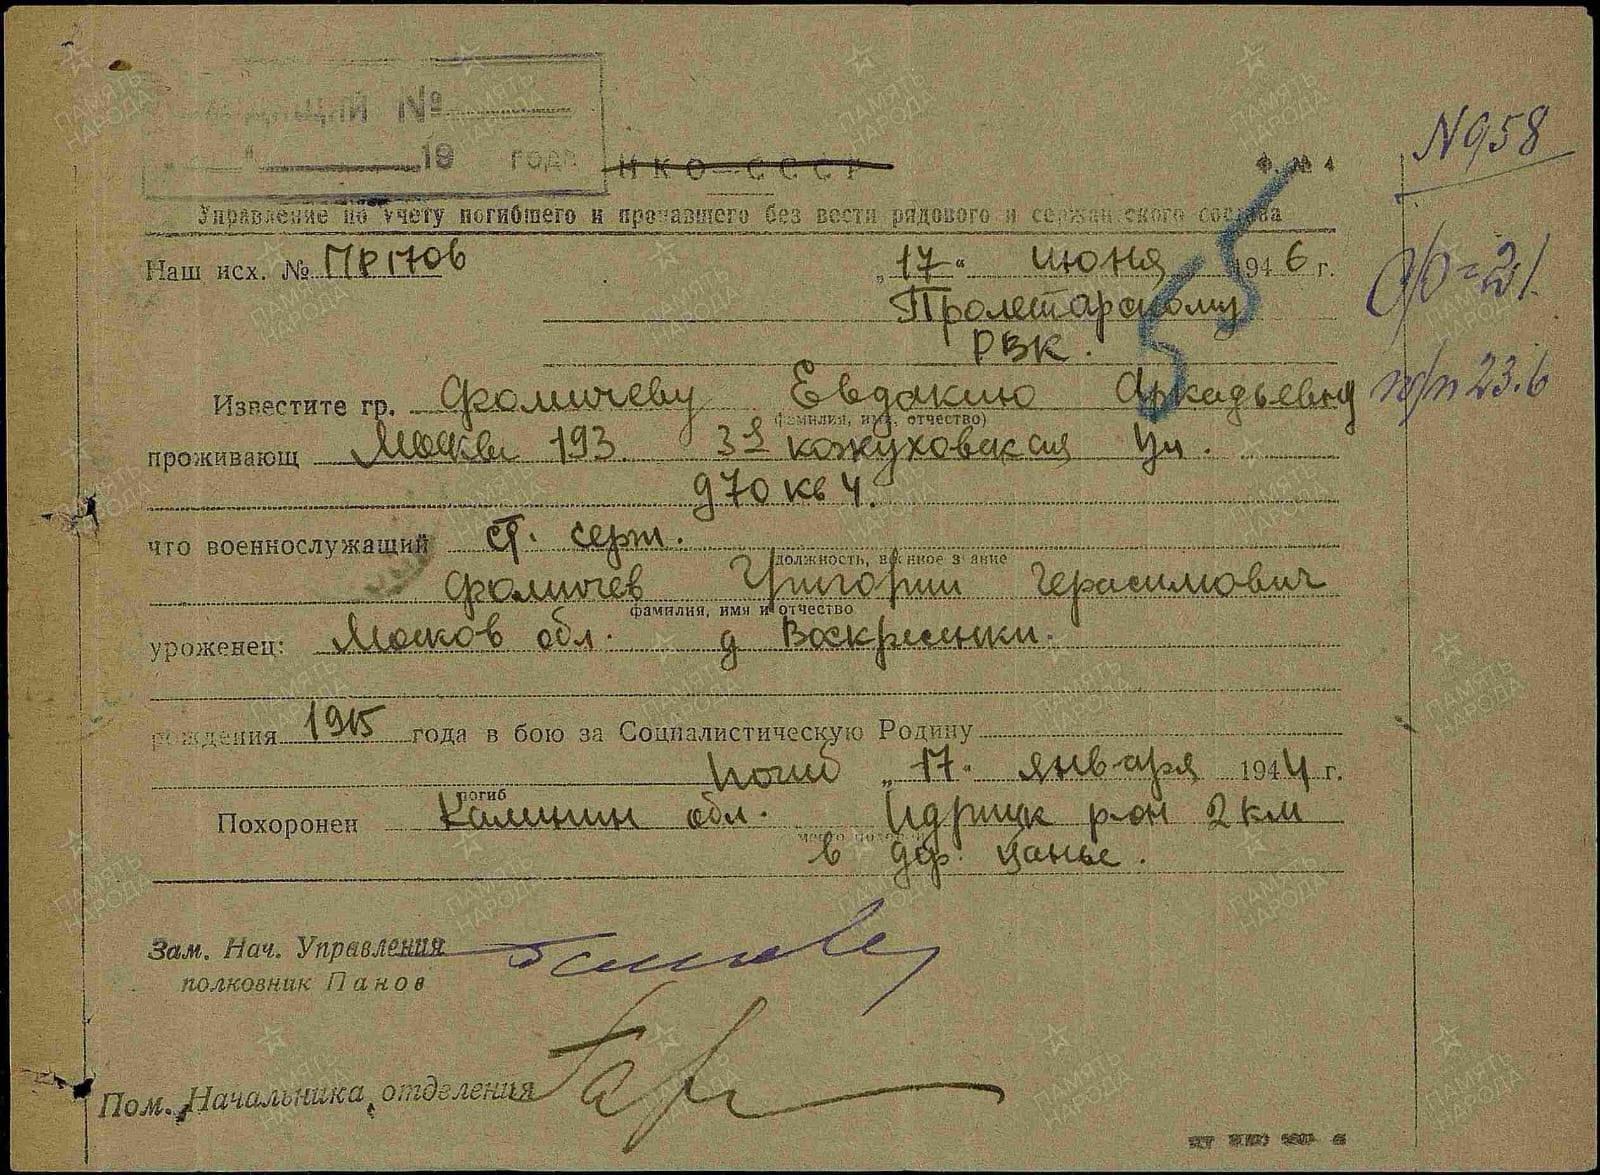 №
19 года
НКО СССР
Ф. № 4
N 958
Управление по учету погибшего и пропавшего без вести рядового и сержантского состава
Наш исх. № ПР1706 „17“ июня 1946 г.
Пролетарскому
РВК.
Известите гр. Фомичеву Евдокию Аркадьевну
(фамилия, имя, отчество)
23.6
проживающ Москва 193 3я Кожуховская ул.
д 70 кв 4.
что военнослужащий ст. серж.
должность, военное звание
Фомичев Григорий Герасимович
фамилия, имя и отчество
уроженец: Москов обл. д Воскресенки.
рождения 1915 года в бою за Социалистическую Родину
погиб „17“ января 1944 г.
погиб
Похоронен Калинин обл. Идрицк р-он 2 км
в дер. Цанье.
Зам. Нач. Управления
полковник Панов
Пом. Начальника отделения
ПАМЯТЬ НАРОДА